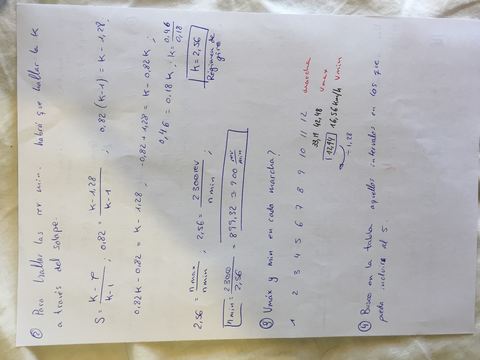 ② Para hallar las rev min. habrá que hallar la K
a través del solape.
S = K - φ / K - 1 ; 0,82 = K - 1,28 / K - 1 ; 0,82 (K-1) = K - 1,28
0,82K - 0,82 = K - 1,28 ; -0,82 + 1,28 = K - 0,82K
0,46 = 0,18K ; K = 0,46 / 0,18
2,56 = n max / n min ; 2,56 = 2300 rev / n min ; K = 2,56
Régimen de giro
n min = 2300 / 2,56 = 899,32 ≃ 900 rev/min
③ Vmáx y min en cada marcha?
1 2 3 4 5 6 7 8 9 10 11 12 marcha
33,11 42,48 vmax
16,56 Km/h vmin
÷ 1,28
④ Busco en la tabla aquellos intervalos en los que
pueda incluir el 5.